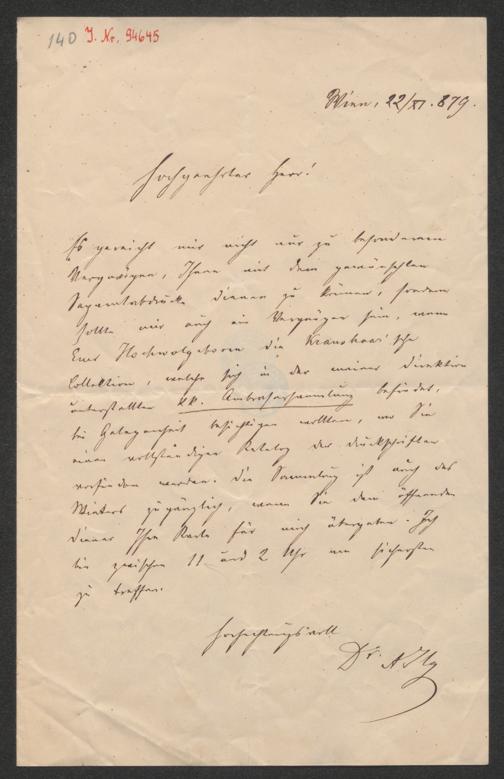 140 J. Nr. 94645
Wien, 22/XI. 879.
Hochgeehrter Herr!
Es gereicht mir nicht nur zu besonderem
Vergnügen, Ihnen mit dem gewünschten
Separatabdrucke dienen zu können, sondern
sollte mir auch ein Vergnügen sein, wenn
Euer Hochwolgeboren die
Collektion, welche sich in der meiner Direktion
unterstellten kk. Ambrasersammlung befindet,
bei Gelegenheit besichtigen wollten, wo Sie
einen vollständigen Katalog der Druckschriften
vorfinden werden. Die Sammlung ist auch des
Winters zugänglich, wenn Sie dem öffnenden
Diener Ihre Karte für mich übergeben. Ich
bin zwischen 11 und 2 Uhr am sichersten
zu treffen.
Hochachtungsvoll
Dr. A Ilg